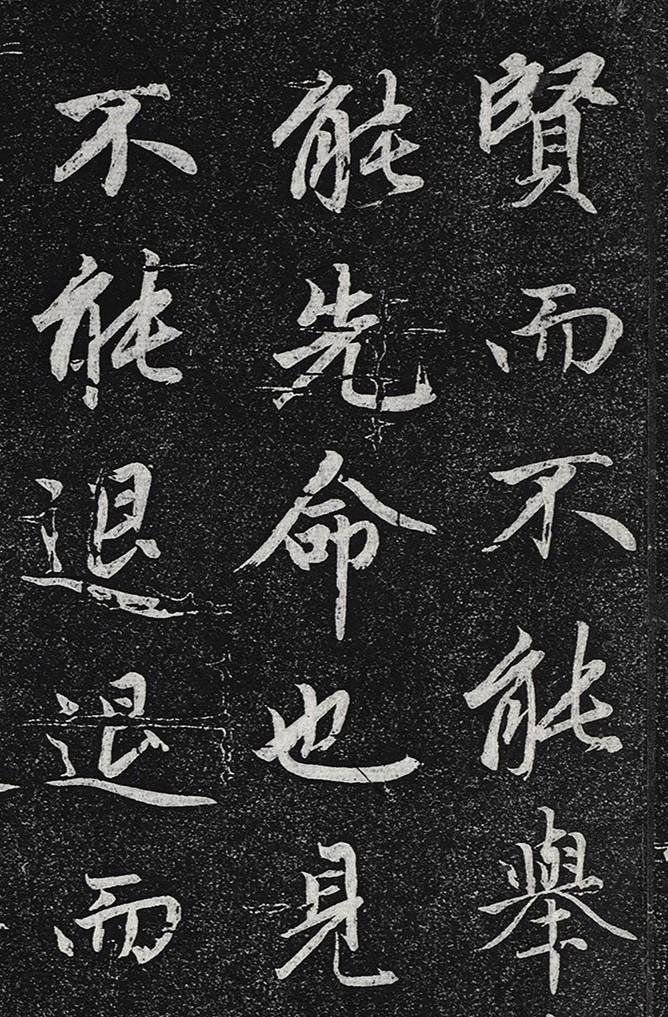 賢而不能舉
能先命也見
不能退退而